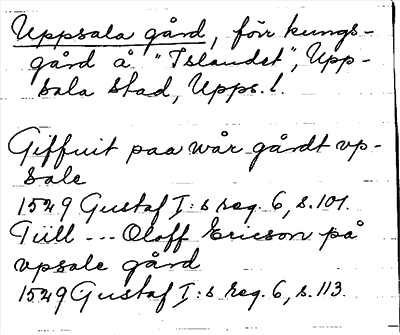 Uppsala gård, förr kungs-
gård å "Islandet", Upp-
sala stad, Upps. l.
Giffuit paa wår gårdt vp-
sale
1529 Gustaf I:s reg. 6, s. 101.
Till --- Oloff Ericson på
vpsale gård
1529 Gustaf I:s reg. 6, s. 113.